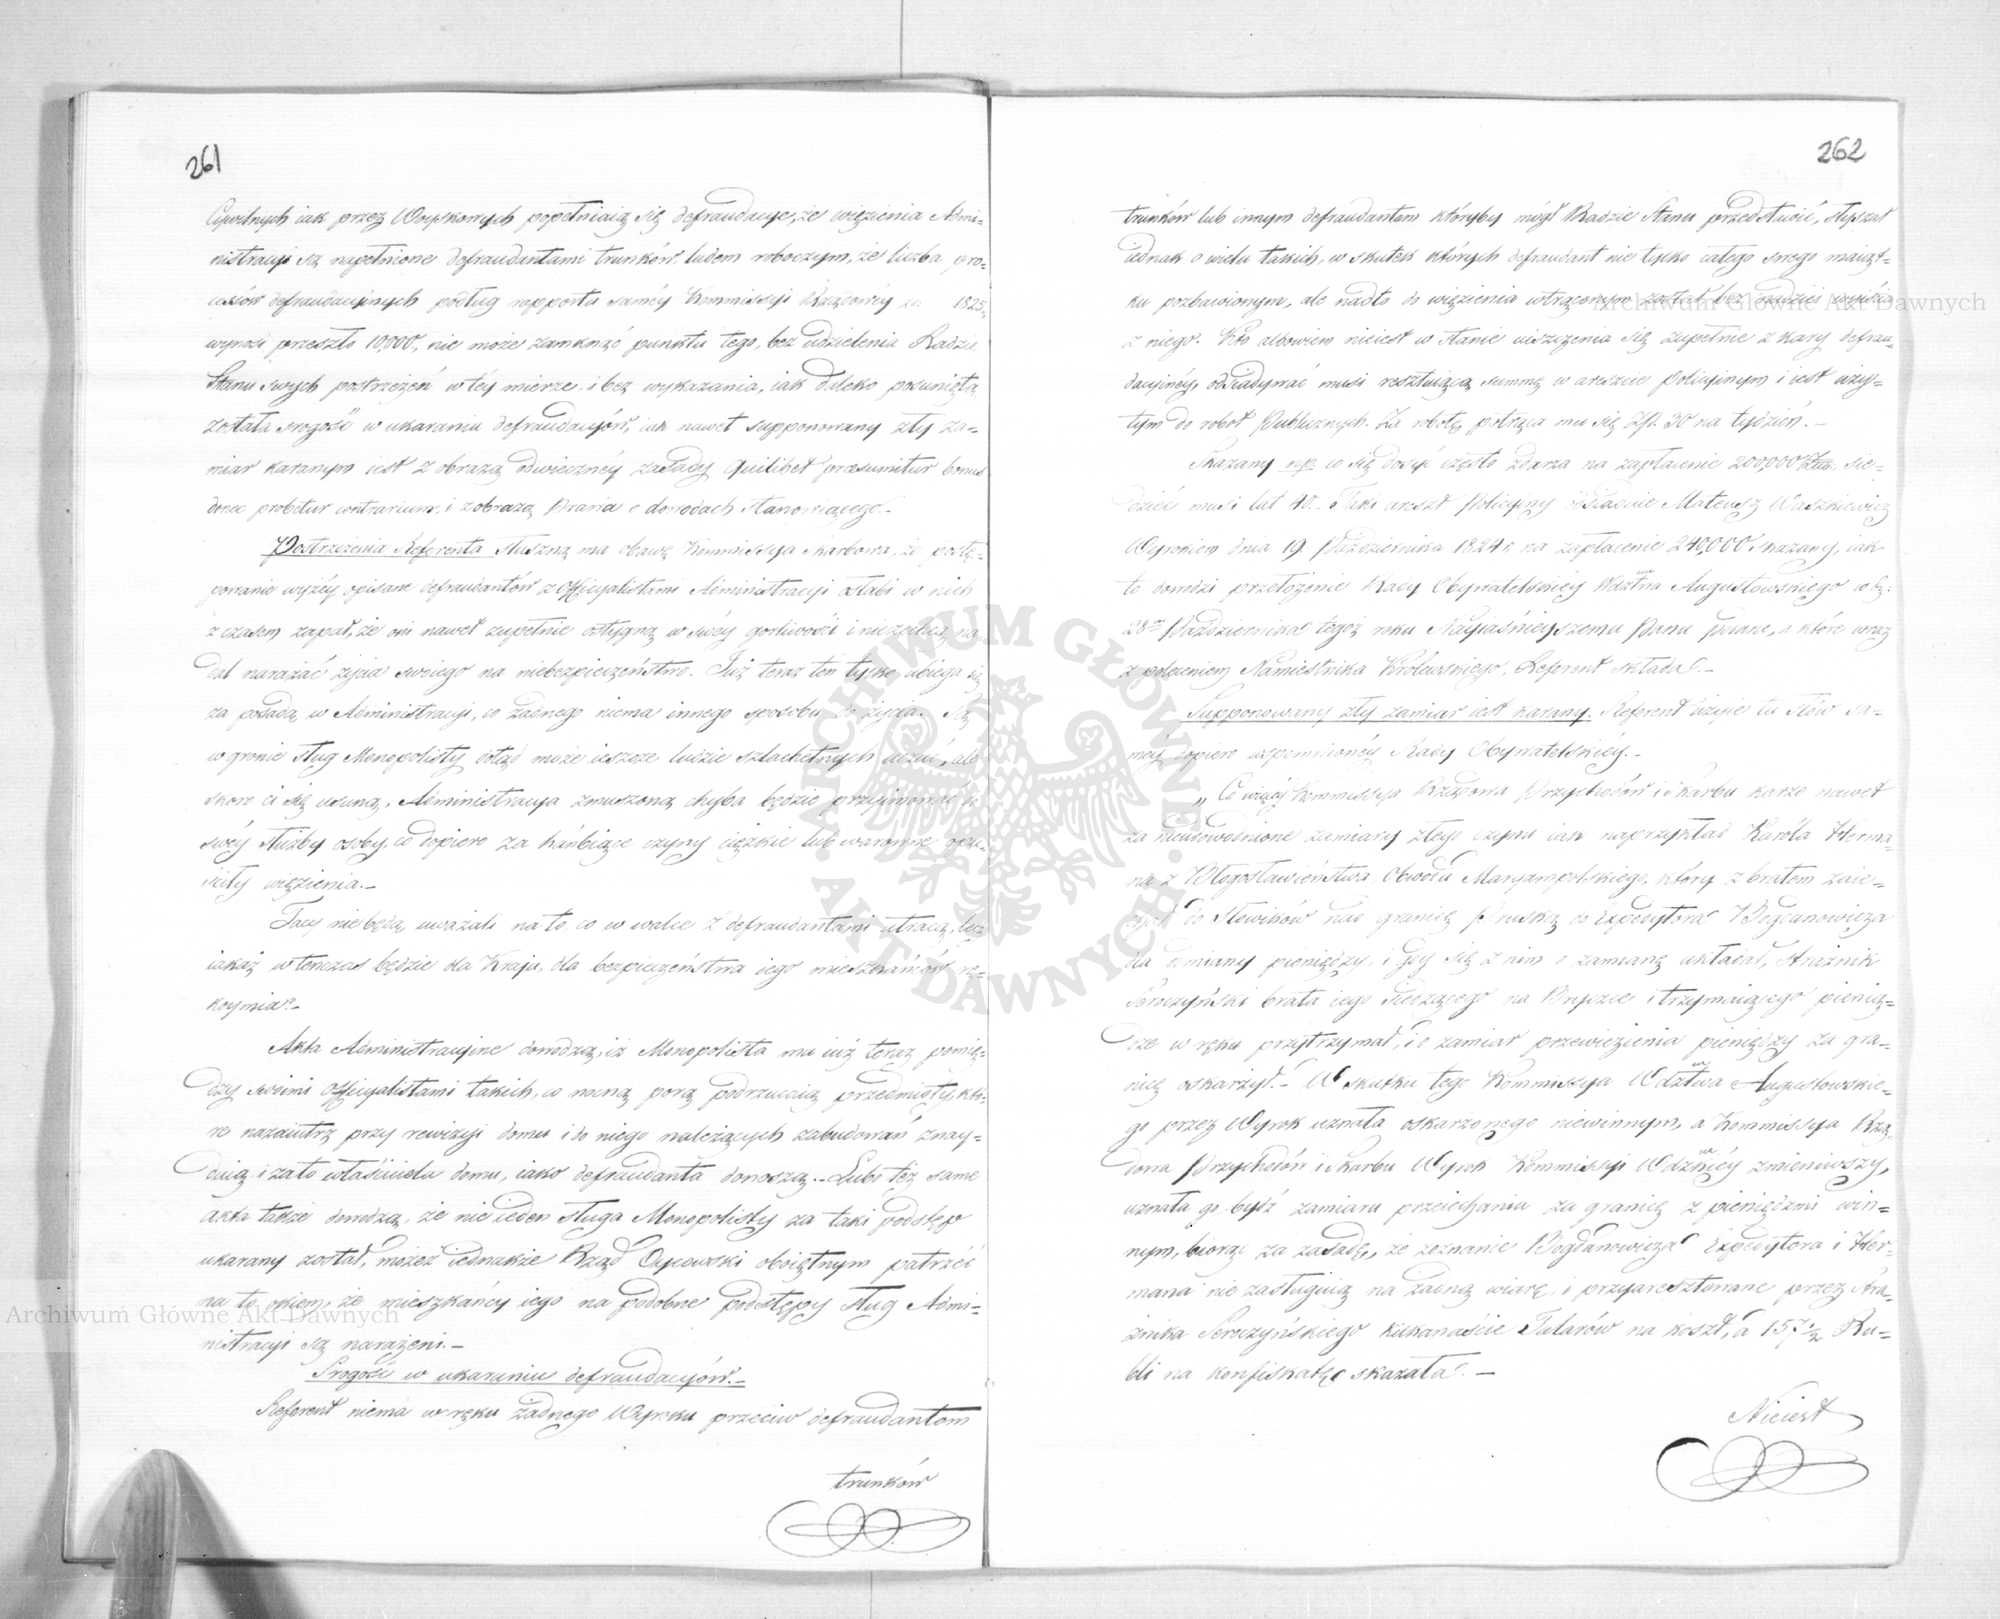 261
Cywilnych iak przez Woyskowych popełniaią się defraudacye, że więzienia Admi-
nistracyi są napełnione defraudantami trunków, ludem roboczym, że liczba pro-
cessów defraudacyinych podług rapportu saméy Kommissyi Rządowéy za 1825,
wynosi przeszło 10,000, nie może zamknąć punktu tego, bez udzielenia Radzie
Stanu swych postrzeżeń w téy mierze, i bez wykazania, iak daleko posuniętą
została srogość w ukaraniu defraudacyów, iak nawet supponowany zły za-
miar karanym iest z obrazą odwiecznéy zasady quilibet præsumitur bonus
donec probetur contrarium, i z obrazą Prawa o dowodach stanowiącego.-
Postrzeżenia Referenta słuszną ma obawę Kommissyja Skarbowa, że postę-
powanie wyżéy opisane defraudantów z Officyalistami Administracyi osłabi w nich
z czasem zapał, że oni nawet zupełnie ostygną w swéy gorliwości i nie zechcą na-
dal narażać życia swoiego na niebezpieczeństwo. Już teraz ten tylko ubiega się
za posadą w Administracyi, co żadnego niema innego sposobu do życia. Są
w gronie sług Monopolisty dotąd może ieszcze ludzie szlachetnych uczuć, ale
skoro ci się usuną, Administracya zmuszoną chyba będzie przyimować do
swéy służby osoby, co dopiero za hańbiące czyny ciężkie lub warowne opu-
ściły więzienia.-
Tacy nie będą uważali na to, co w walce z defraudantami utracą, lecz
iakaż wtenczas będzie dla Kraju, dla bezpieczeństwa iego mieszkańców rę-
koymia?-
Akta Administracyine dowodzą, iż Monopolista ma iuż teraz pomię-
dzy swoimi Officyalistami takich, co nocną porą podrzucaią przedmioty, któ-
re nazaiutrz przy rewizyi domu i do niego należących zabudowań znay-
duią i za to właściciela domu, iako defraudanta donoszą.- Lubo też same
Akta także dowodzą, że nie ieden sługa Monopolisty za taki podstęp
ukarany został, możeż iednakże Rząd Oycowski oboiętnym patrzéć
na to okiem, że mieszkańcy iego na podobne podstępy sług Admi-
nistracyi są narażeni.-
Srogość w ukaraniu defraudacyów.-
Referent niema w ręku żadnego Wyroku przeciw defraudantom
trunków
262
trunków lub innym defraudantom któryby mógł Radzie Stanu przedstawić, słyszał
iednak o wielu takich, w skutek których defraudant nie tylko całego swego maiąt-
ku pozbawionym, ale nadto do więzienia wtrąconym został bez nadziei wyiścia
z niego. Kto albowiem nieiest w stanie uiszczenia się zupełnie z kary defrau-
dacyinéy, odsiadywać musi resztuiącą summę w areszcie policyinym i iest uży-
tym do robot Publicznych. Za robotę potrąca mu się Zł. 30 na tydzień.-
Skazany np. co się dosyć często zdarza na zapłacenie 200,000 sie-
dzieć musi lat 40. Taki areszt Policyiny odsiaduie Mateusz Waszkiewicz
Wyrokiem dnia 19 Października 1824 r. na zapłacenie 240,000 skazany, iak
to dowodzi przełożenie Rady Obywatelskiey Wdztwa Augustowskiego w
28 Października tegoż roku Nayiaśnieyszemu Panu podane, a które wraz
z poleceniem Namiestnika Królewskiego, Referent składa.-
Supponowany zły zamiar iest karany. Referent użyie tu słów sa-
méy dopiero wspomnionéy Rady Obywatelskiéy.-
„Co więcéy Kommissyja Rządowa Przychodów i Skarbu karze nawet
za nieudowodnione zamiary złego czynu iak naprzykład Karóla Herma-
na z Błogosławieństwa Obwodu Maryampolskiego, który z bratem zaie-
chał do Słowików nad granicą Pruską do Expedytora Bogdanowicza
dla odmiany pieniędzy, i gdy się z nim o zamianę układał, strażnik
Serczyński brata iego siedzącego na Bryczce i trzymaiącego pienią-
dze w ręku przytrzymał, i o zamiar przewiezienia pieniędzy za gra-
nicę oskarżył.- W skutku tego Kommissyja Wdztwa Augustowskie-
go przez Wyrok uznała oskarżonego niewinnym, a Kommissyja Rzą-
dowa Przychodów i Skarbu Wyrok Kommissyi Wdzkiéy zmieniwszy,
uznała go bydź zamiaru przeiechania za granicę z pieniędzmi win-
nym, biorąc za zasadę, że zeznanie Bogdanowicza Expedytora i Her-
mana nie zasługuią na żadną wiarę, i przyaresztowane przez Stra-
żnika Serczyńskiego kilkanaście Talarów na koszt, a 157 ½ Ru-
bli na konfiskatę skazała.-
Nieiest